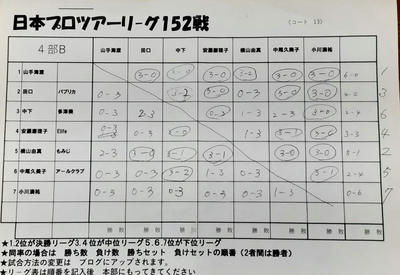 日本プロツアーリーグ152戦
(コート 13)
4部B 山手海渡 田口 中下 安藤磨理子 横山由真 中尾久美子 小川湧祐
1 山手海渡 3-0 3-0 3-2 3-0 3-0 6-0 1
2 田口 パプリカ 0-3 3-2 0-3 0-3 3-0 3
3 中下 多津美 0-3 2-3 1-3 2-3 3-0 6
4 安藤磨理子 Elife 0-3 3-0 1-3 3-1 3-0 3-3 4
5 横山由真 もみじ 2-3 3-0 3-1 3-1 3-0 3-0 5-1 2
6 中尾久美子 アールクラブ 0-3 0-3 3-2 1-3 0-3 3-1 2-4 5
7 小川湧祐 0-3 0-3 0-3 0-3 0-3 1-3 0-6 7
勝 敗 勝 敗 勝 敗 勝 敗 勝 敗 勝 敗 勝 敗
★1.2位が決勝リーグ3.4位が中位リーグ5.6.7位が下位リーグ
★同率の場合は 勝ち数 負け数 勝ちセット 負けセットの順番 (2者間は勝者)
★試合方法の変更は ブログにアップされます。
★リーグ表は順番を記入後 本部にもってきてください